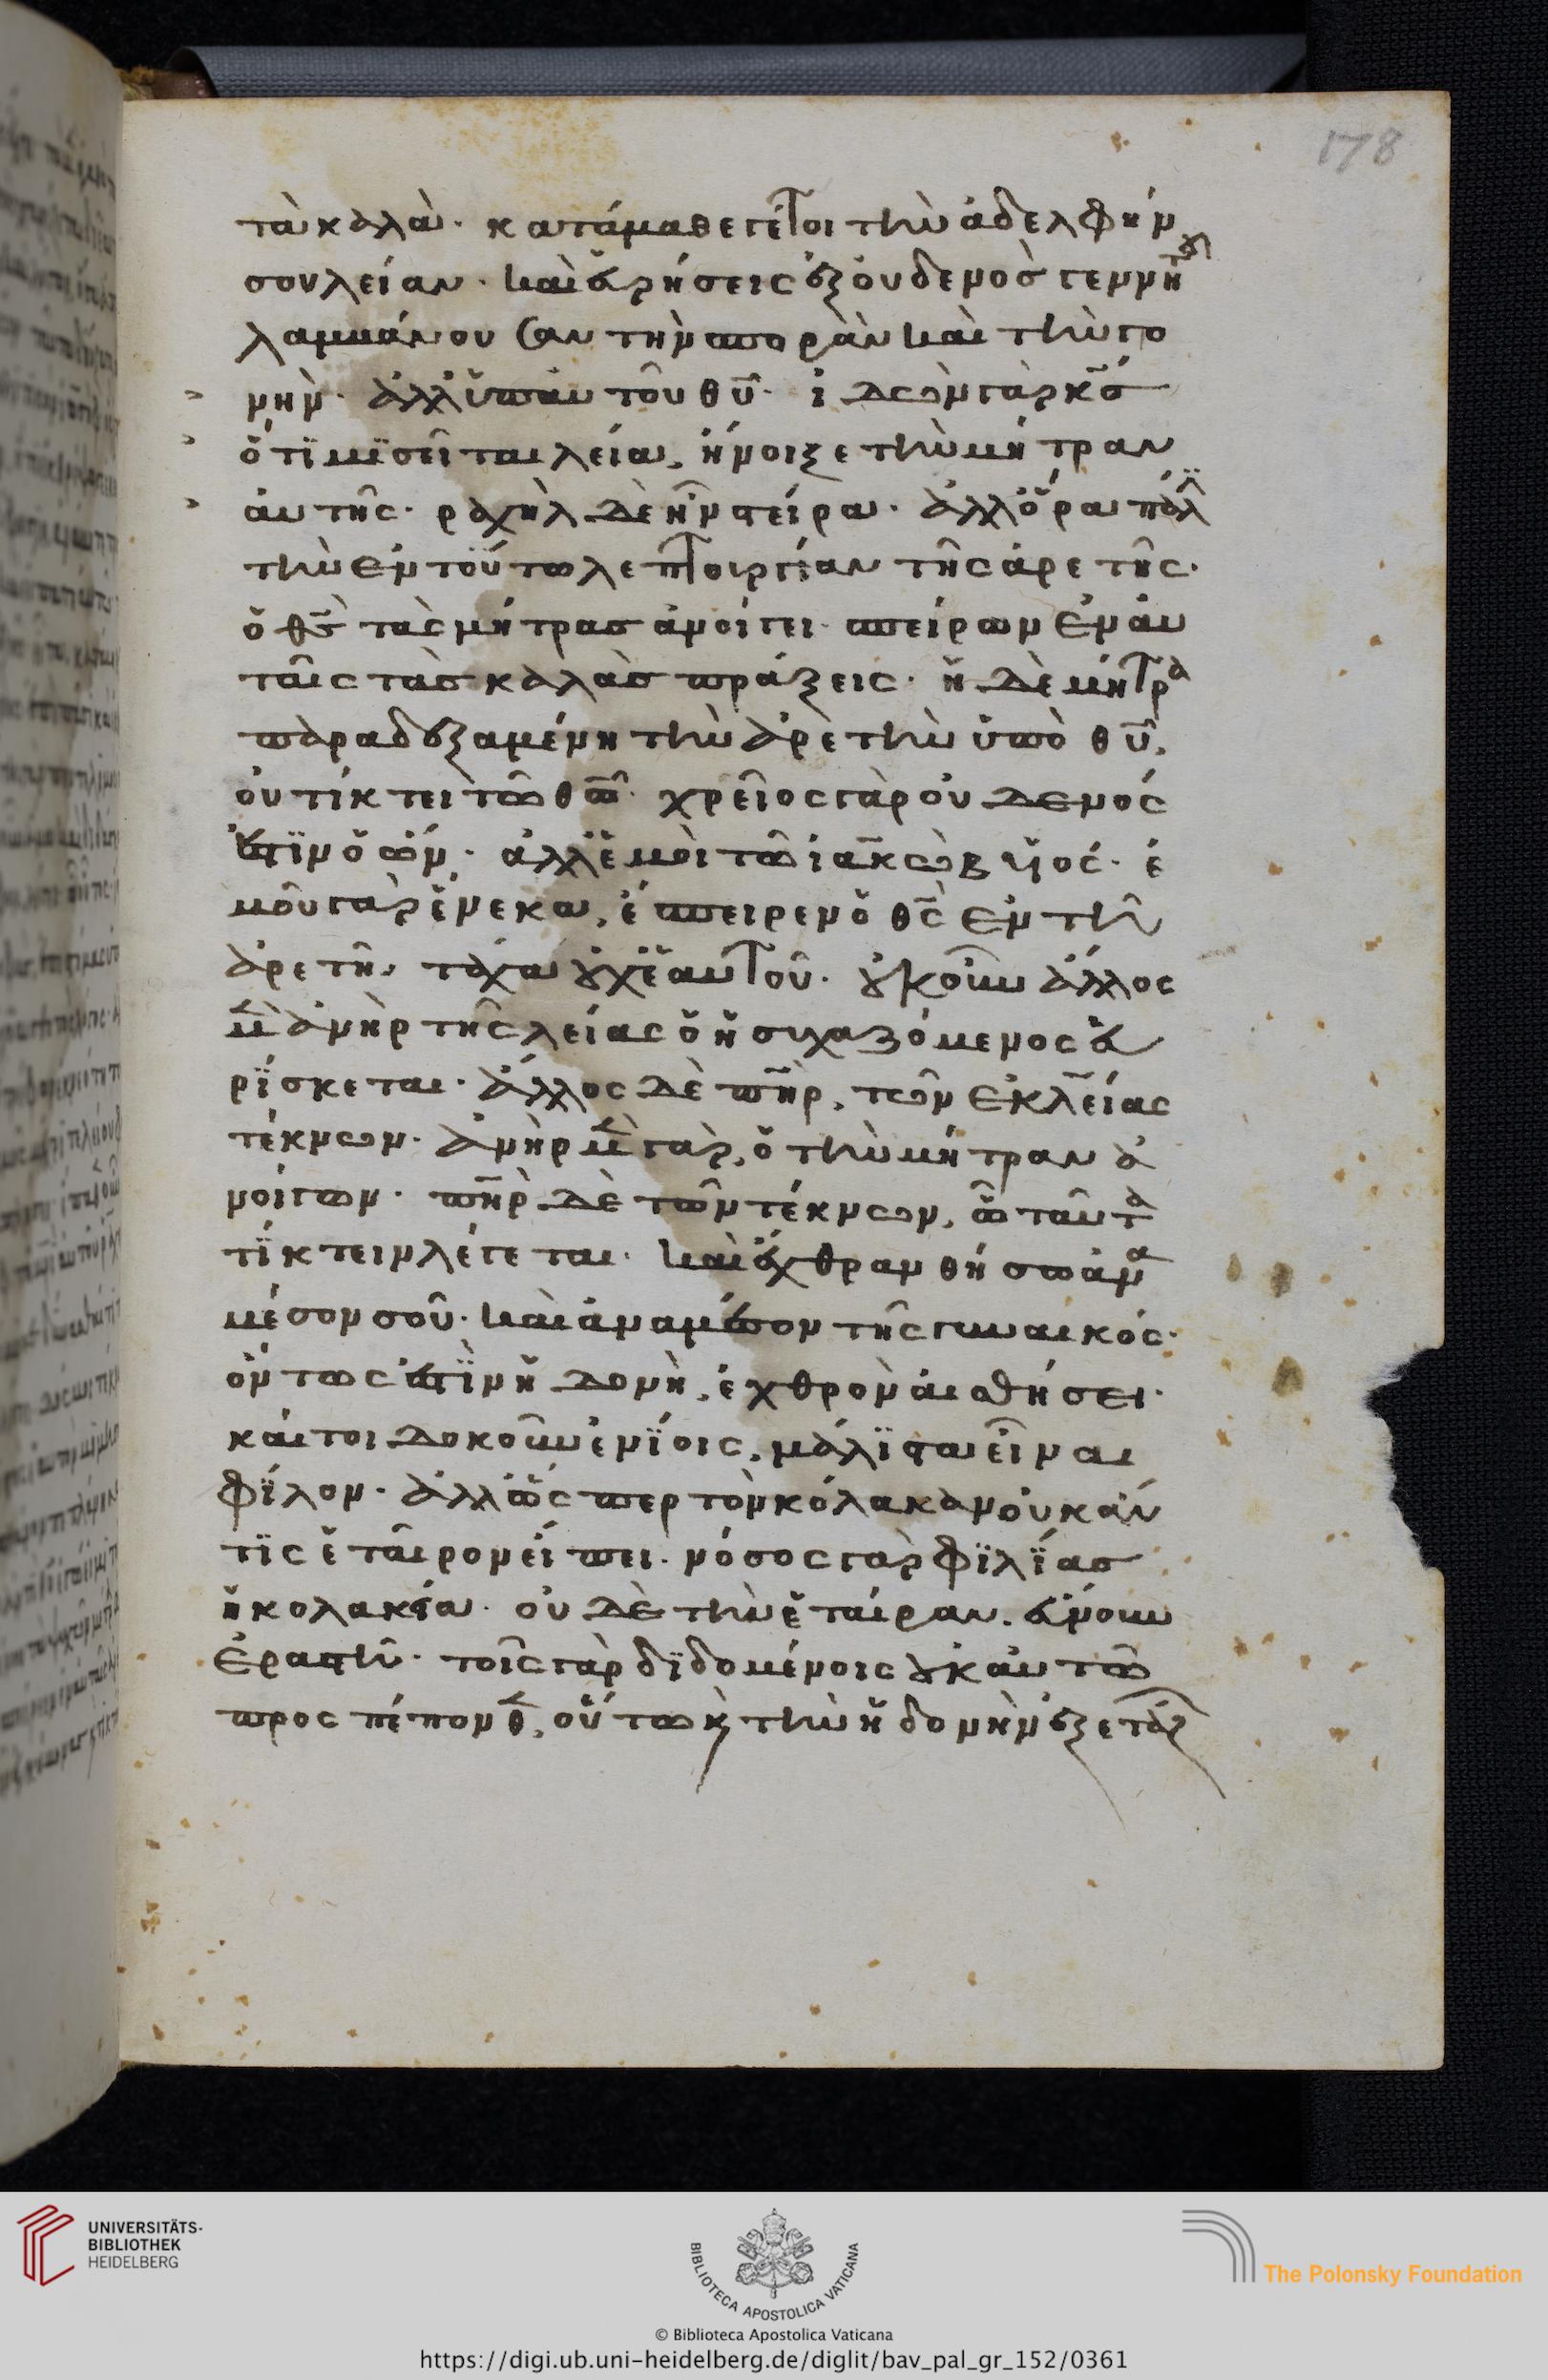 178
τὰ καλὰ· κατάμαθε γέτοι τὴν ἀδελφήν
σου λείαν· καὶ εὑρήσεις ἐξ οὐδενὸς γεννητοῦ
λαμβάνουσαν τὴν σπορὰν καὶ τὴν γο
νήν· ἀλλ' ὑπ' αυτοῦ θῡ· ἰδὼν γὰρ κ̅σ
ὅτι μισεῖται λεία, ἤνοιξε τὴν μήτραν
αυτῆς· ραχὴλ δὲ ἦν στείρα· ἀλλ' ὅρα πάλϊ
τὴν ἐν τούτω λεπτουργίαν τῆς ἀρετῆς·
ὁ θ̅σ τὰς μήτρας ἀνοίγει σπείρων ἐν αυ
ταῖς τὰς καλὰς πράξεις· ἡ δὲ μήτρα
παραδεξαμένη τὴν ἀρετὴν ὑπὸ θῡ,
οὐ τίκτει τῶ θ̅ω· χρεῖος γὰρ οὐδενός
ἐστιν ὁ ὤν· ἀλλ' ἐμοὶ τῶ ἰακὼβ υἱός· ἐ
μοῦ γὰρ ἕνεκα, ἔσπειρεν ὁ θ̅ς ἐν τῆ
ἀρετῆ, τάχα οὐχ ἑαυτοῦ· οὐκοῦν ἄλλος
μ̅ ἀνὴρ τῆς λείας ὁ ἡσυχαζόμενος εὑ
ρίσκεται· ἄλλος δὲ π̅ηρ, τῶν ἐκ λείας
τέκνων· ἀνὴρ μ̅ γὰρ, ὁ τὴν μήτραν ἀ
νοίγων· π̅ηρ δὲ τῶν τέκνων, ὧ ταῦτα
τίκτειν λέγεται· καὶ ἔχθραν θήσω ἀνα
μέσον σοῦ· καὶ ἀναμέσον τῆς γυναικός·
ὄντως ἐστὶν ἡδονὴ, ἐχθρὸν αἰσθήσει·
καίτοι δοκοῦν ἐνίοις, μάλιστα εἶναι
φίλον· ἀλλ' ὥσπερ τὸν κόλακα μὲν οὐκ ἄν
τις ἑταῖρον εἴπει· νόσος γὰρ φιλίας
ἡ κολακεία· οὐδὲ τὴν ἑταίραν, εὔνουν
ἐραστῆ· τοῖς γὰρ διδομένοις οὐκ αυτῶ
προςπέπονθ, οὕτω κ̀ τὴν ἡδονὴν ἐξετάζ
UNIVERSITÄTS-
BIBLIOTHEK
HEIDELBERG
BIBLIOTECA APOSTOLICA VATICANA
The Polonsky Foundation
© Biblioteca Apostolica Vaticana
https://digi.ub.uni-heidelberg.de/diglit/bav_pal_gr_152/0361